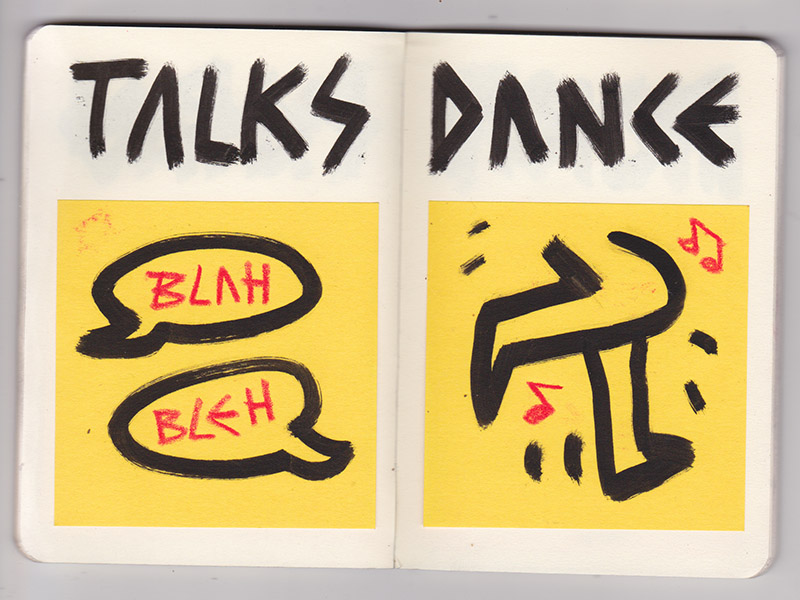 TALKS
BLAH
BLEH
DANCE